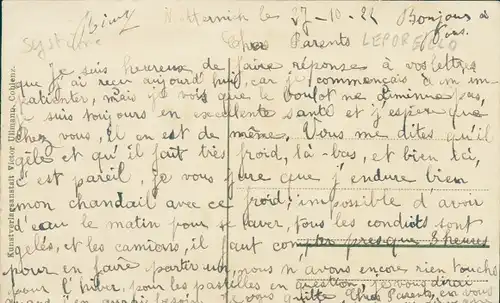 Metternich le 27-10-22 Bonjour à
tous.
Chers Parents LEPORELLO
Système
Je suis heureux de faire réponse à vos lettres
que j'ai reçu aujourd'hui, car je commençais à m'im-
patienter, mais je vois que le boulot ne diminue pas,
je suis toujours en excellente santé et j'espère que
chez vous, il en est de même. Vous me dites qu'il
gèle et qu'il fait très froid, là-bas, et bien ici,
c'est pareil, je vous jure que j'endure bien
mon chandail avec ce froid; impossible d'avoir
d'eau le matin pour se laver, tous les conduits sont
gelés, et les camions, il faut compter presque 3 heures
pour en faire partir un, nous n'avons encore rien touché
pour l'hiver, pour les pastelles en question, je vous dirai
quand j'en aurai besoin. Je vous quitte Chers Parents, en vous
Kunstverlagsanstalt Victor Ullmann, Coblenz.